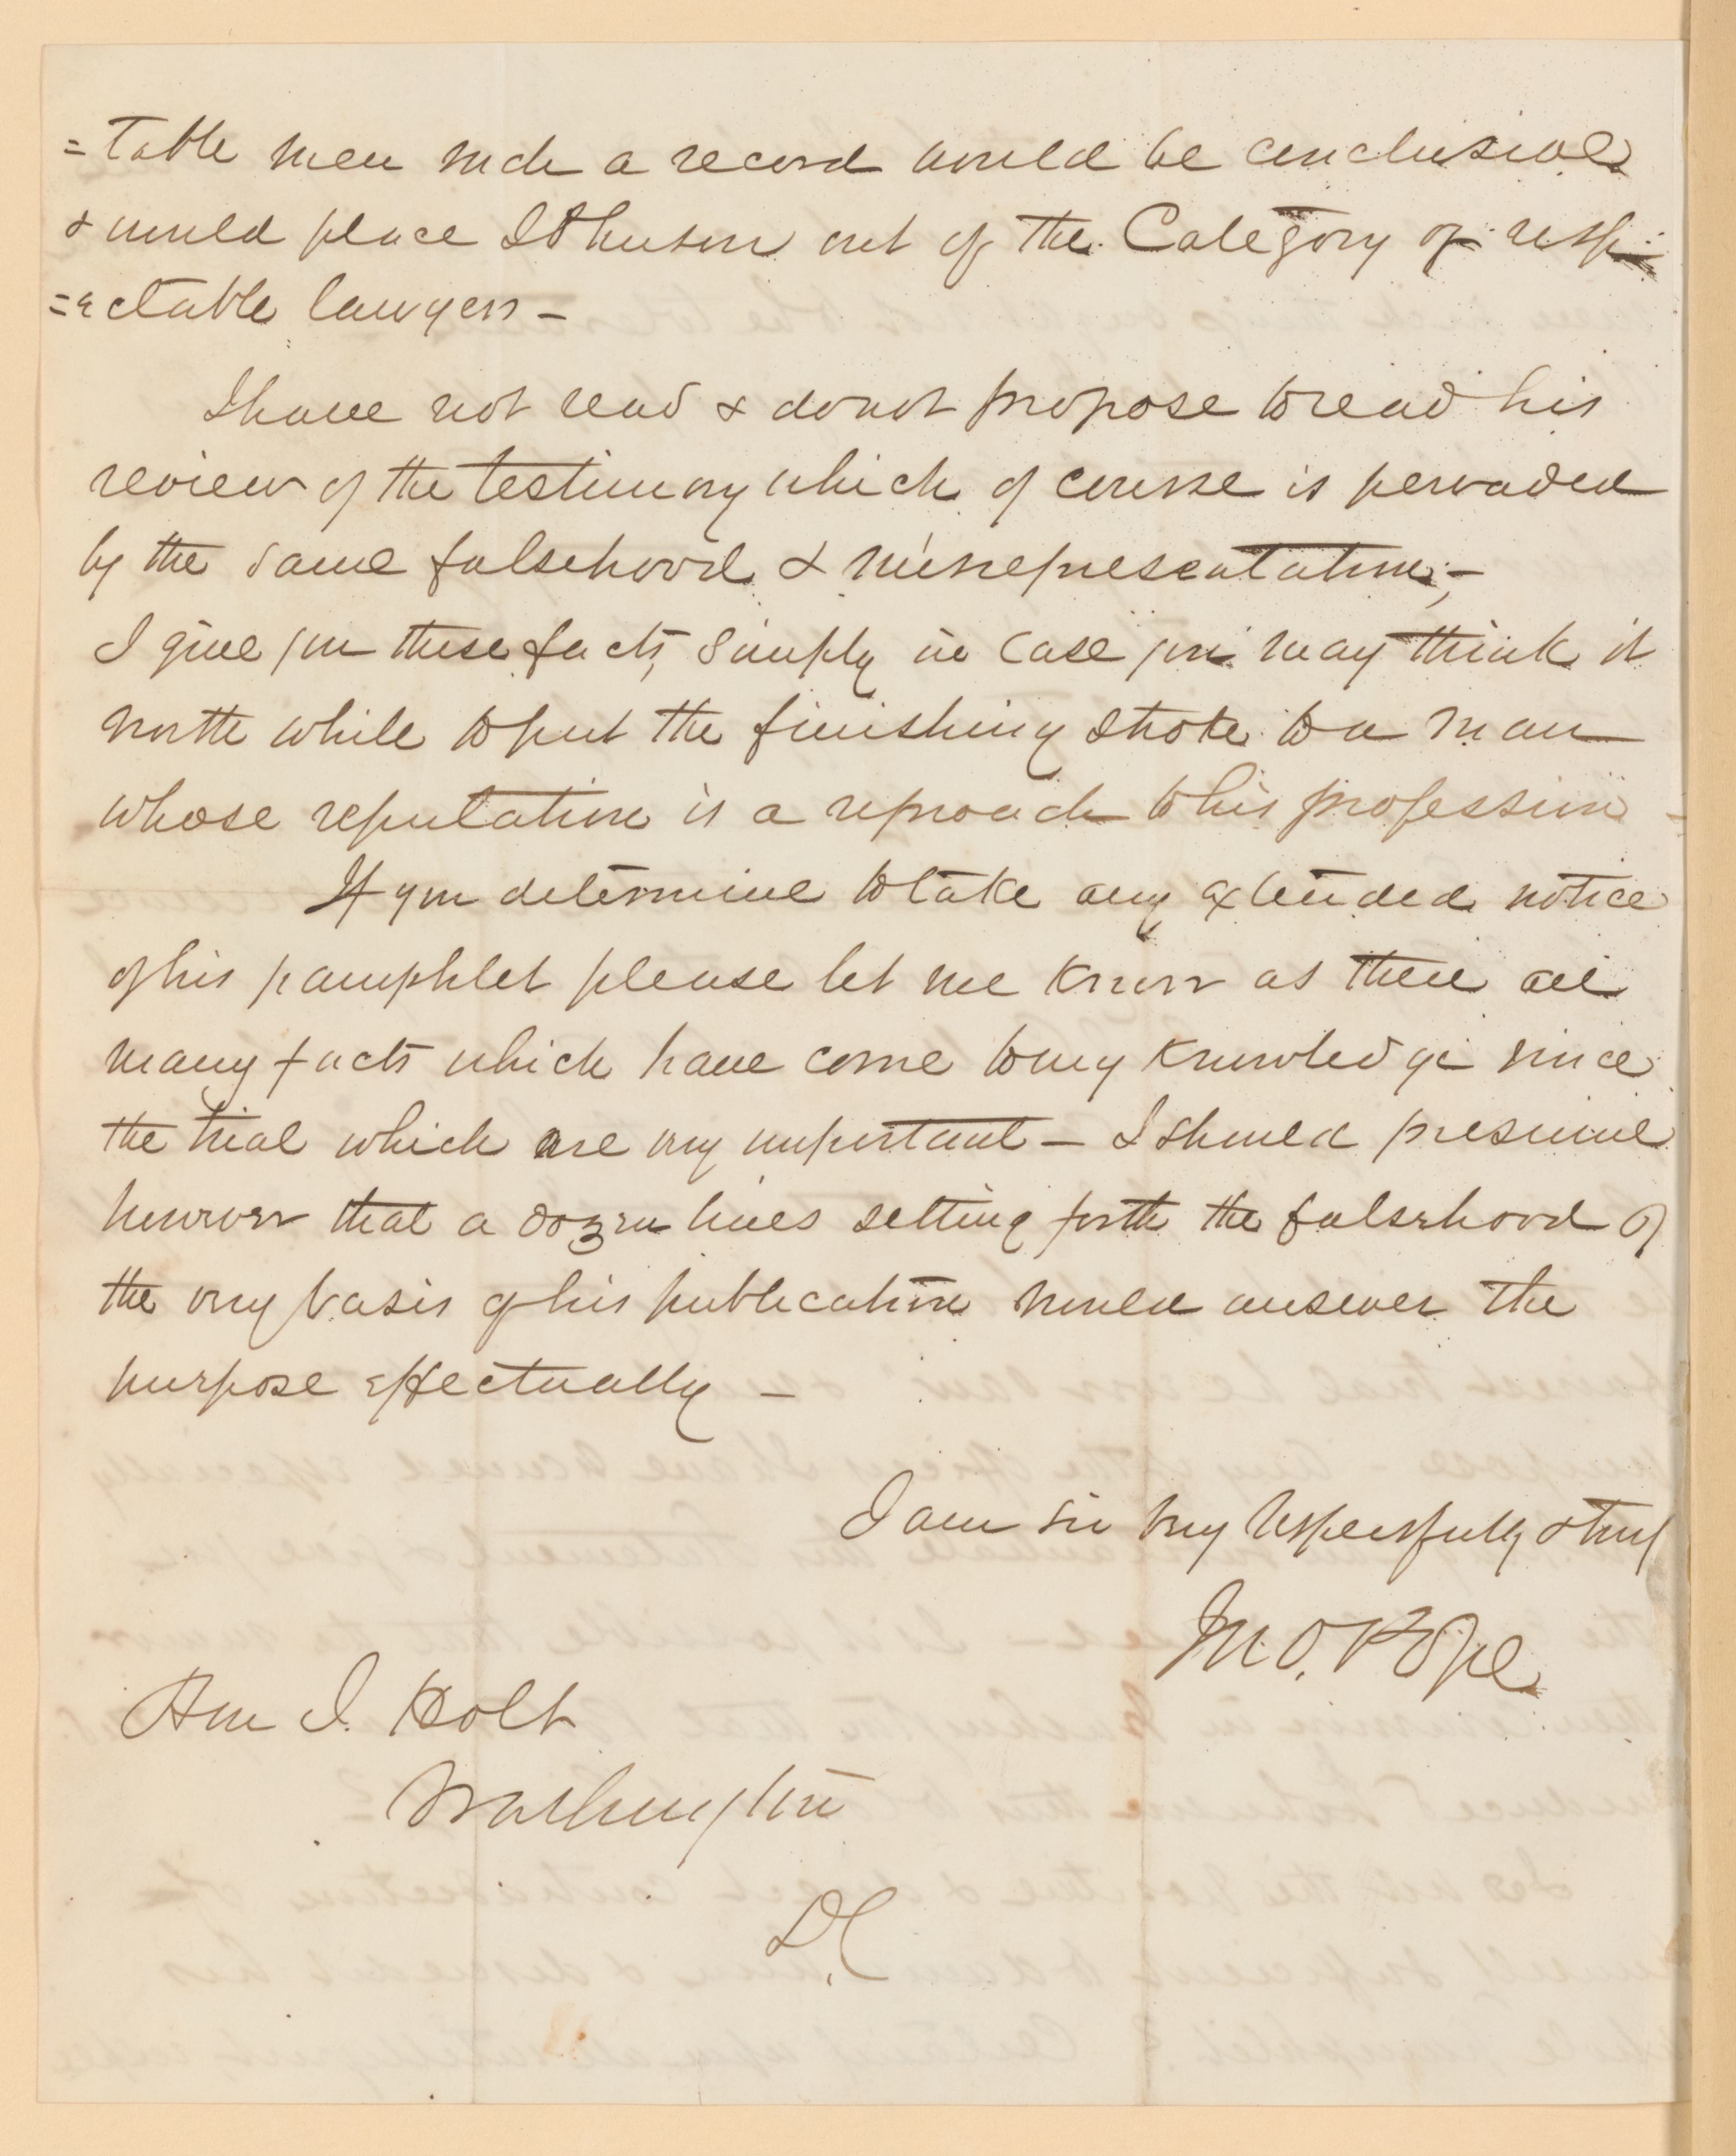 =table men such a record would be conclusive
& would place Johnson out of the Category of resp=
=ectable lawyers –
I have not read & do not propose to read his
review of the testimony which of course is pervaded
by the same falsehood & misrepresentation; –
I give you these facts, simply in case you may think it
worth while to put the finishing stroke to a man
whose reputation is a reproach to his profession –
If you determine to take any extended notice
of his pamphlet please let me know as there are
many facts which have come to my knowledge since
the trial which are very important – I should presume
however that a dozen lines setting forth the falsehood of
the very basis of his publication would answer the
purpose effectually –
I am sir very respectfully &
Jno. Pope
Hon J. Holt
Washington
D.C